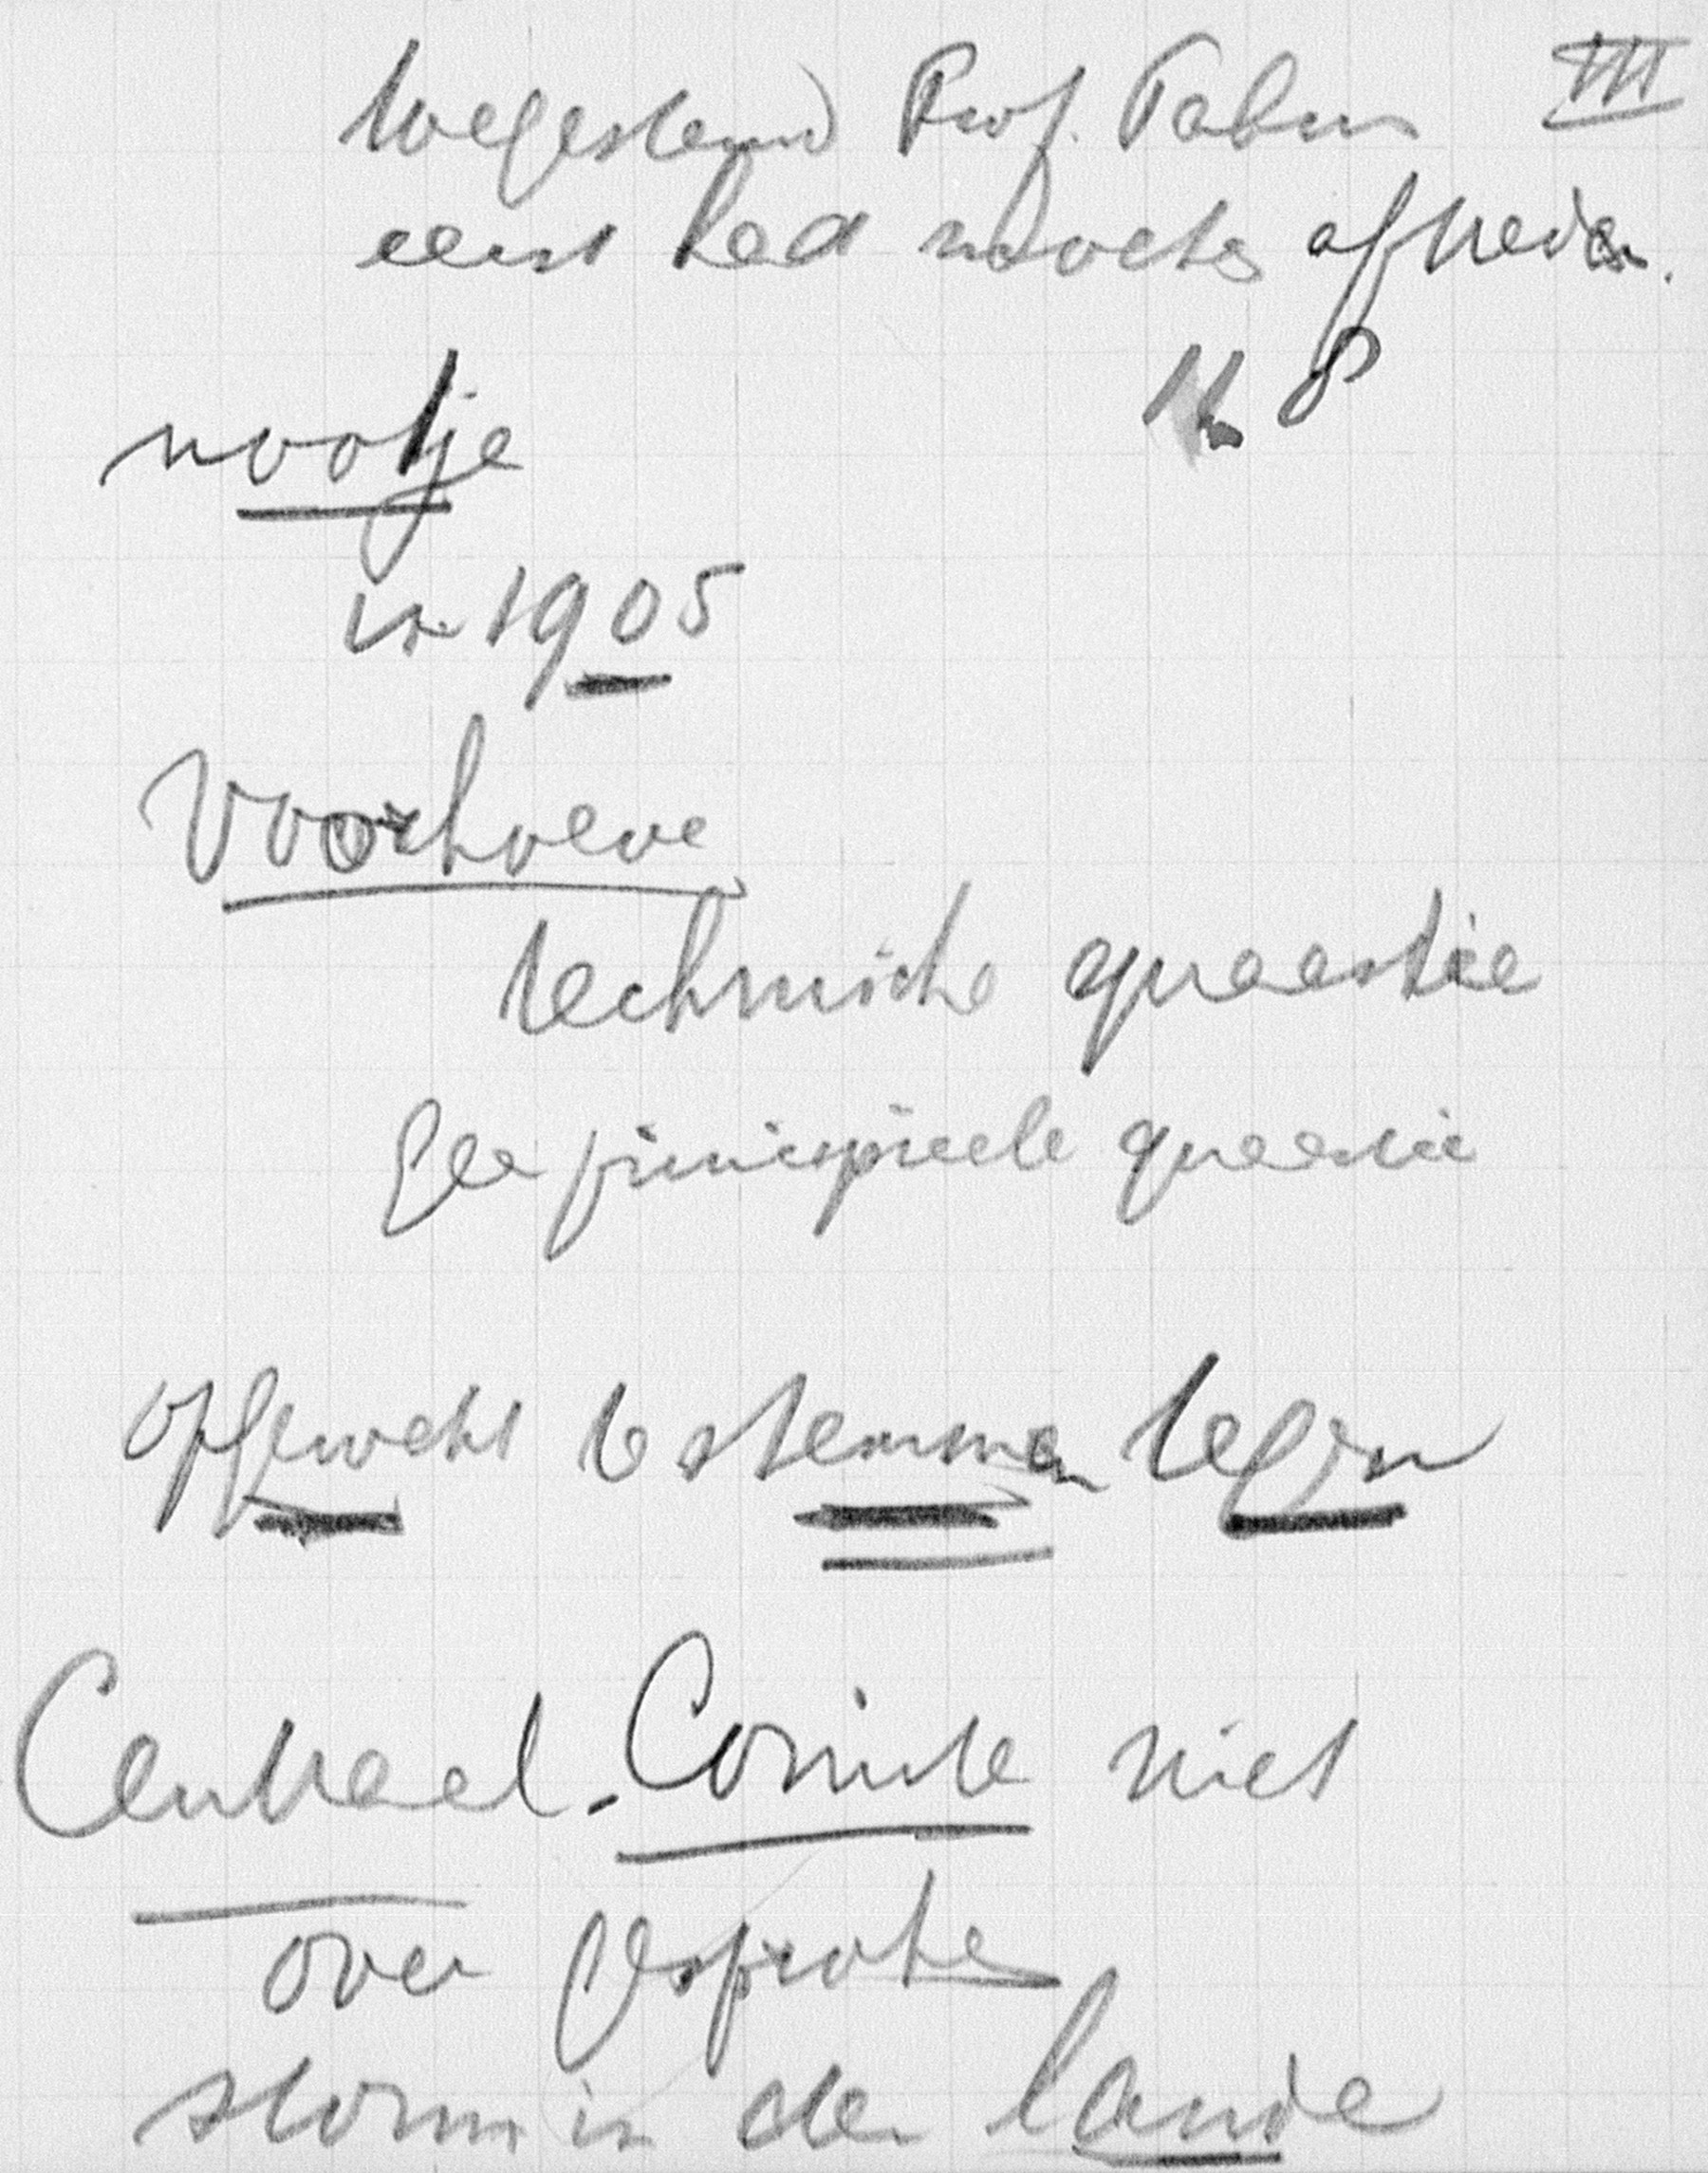 III
toegestemd Prof. Fabius
eerst had moeten aftreden.
nootje
in 1905
Voorhoeve
technische quaestie
Gee principieele quaestie
opgewekt te stemmen tegen
Centraal-Comite niet
over gesproken
storm in den lande